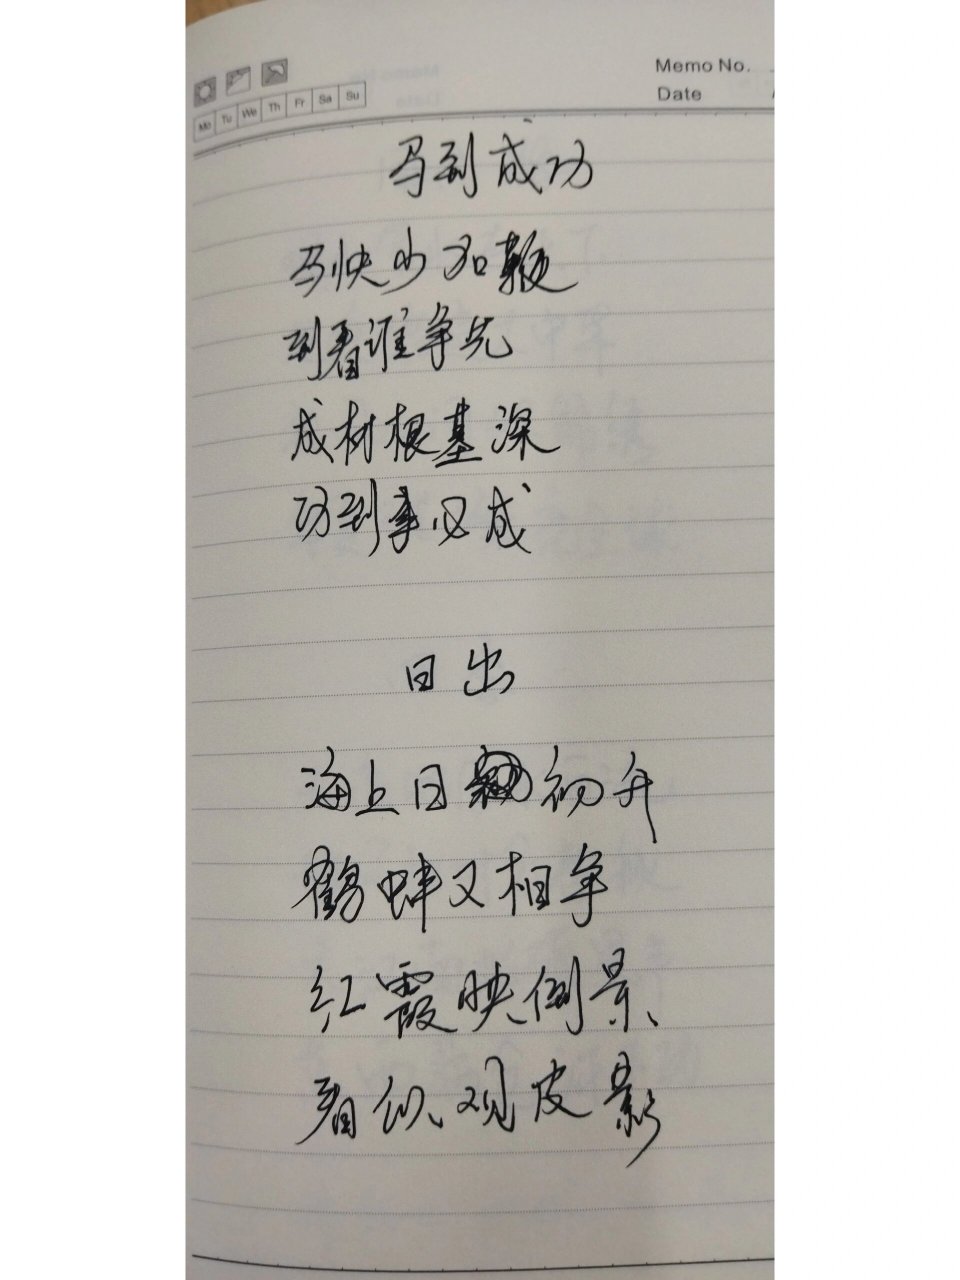 Memo No.
Date
Mo Tu We Th Fr Sa Su
马到成功
马快少加鞭
到看谁争先
成材根基深
功到事必成
日出
海上日初升
鹤蚌又相争
红霞映倒景
看似观皮影